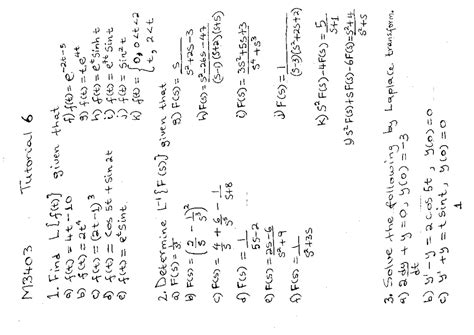 M3403 Tutorial 6
1. Find L{f(t)} given that
a) f(t) = 4t - 10
b) f(t) = 2t⁴
c) f(t) = (2t - 1)³
d) f(t) = cos 5t + sin 2t
e) f(t) = eᵗ sin t
f) f(t) = e^(-2t-5)
g) f(t) = t e^(4t)
h) f(t) = eᵗ sinh t
i) f(t) = eᵗ sin t
j) f(t) = sin² t
k) f(t) = { 0, 0<t<2
t, 2<t
2. Determine L⁻¹{F(s)} given that
a) F(s) = 1/s³
b) F(s) = (2/s - 1/s³)²
c) F(s) = 4/s + 6/s⁵ - 1/(s+8)
d) F(s) = 1/(5s-2)
e) F(s) = (2s-6)/(s²+9)
f) F(s) = 1/(s²+3s)
g) F(s) = s/(s²+2s-3)
h) F(s) = (s²-26s-47)/((s-1)(s+2)(s+5))
i) F(s) = (3s²+5s+3)/(s⁴+s³)
j) F(s) = 1/((s-3)(s²+2s+2))
k) s²F(s) - 4F(s) = 5/(s+1)
l) s²F(s) + sF(s) - 6F(s) = (s²+4)/(s²+s)
3. Solve the following by Laplace transform.
a) 2 dy/dt + y = 0, y(0) = -3
b) y' - y = 2 cos 5t, y(0) = 0
c) y' + y = t sin t, y(0) = 0
1